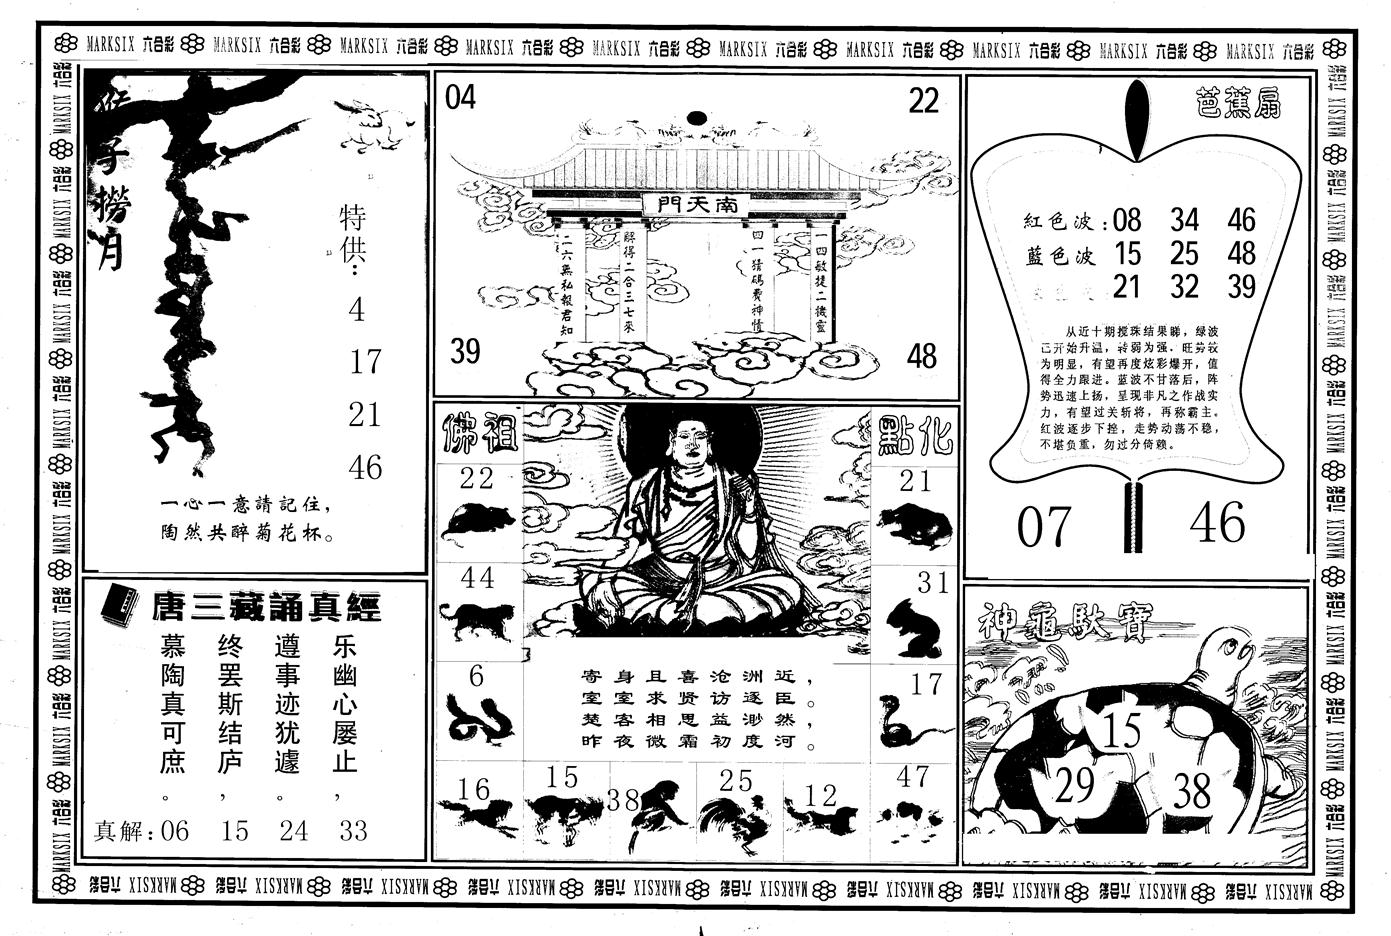 MARKSIX 六合彩 MARKSIX 六合彩 MARKSIX 六合彩 MARKSIX 六合彩 MARKSIX 六合彩 MARKSIX 六合彩 MARKSIX 六合彩 MARKSIX 六合彩 MARKSIX 六合彩 MARKSIX 六合彩
猴子撈月
特供：
4
17
21
46
一心一意請記住，
陶然共醉菊花杯。
04
22
南天門
一四敏捷二機靈
四一猜碼費神情
解得二合三七來
二六無私報君知
39
48
芭蕉扇
紅色波：08 34 46
藍色波 15 25 48
21 32 39
从近十期搅珠结果睇，绿波
已开始升温，转弱为强。旺势较
为明显，有望再度炫彩爆开，值
得全力跟进。蓝波不甘落后，阵
势迅速上扬，呈现非凡之作战实
力，有望过关斩将，再称霸主。
红波逐步下挫，走势动荡不稳，
不堪负重，勿过分倚赖。
07
46
唐三藏誦真經
乐幽心屡止，
遵事迹犹遽。
终罢斯结庐，
慕陶真可庶。
真解：06 15 24 33
佛祖
點化
22
21
44
31
6
17
寄身且喜沧洲近，
室室求贤访逐臣。
楚客相思益渺然，
昨夜微霜初度河。
16
15
38
25
12
47
神龜馱寶
15
29
38
MARKSIX 六合彩 MARKSIX 六合彩 MARKSIX 六合彩 MARKSIX 六合彩 MARKSIX 六合彩 MARKSIX 六合彩 MARKSIX 六合彩 MARKSIX 六合彩 MARKSIX 六合彩 MARKSIX 六合彩